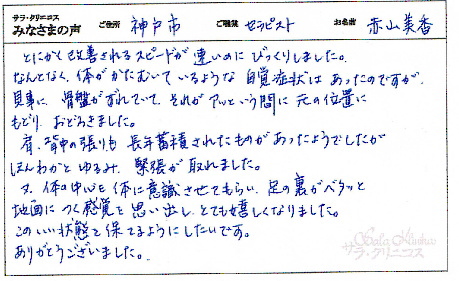 サラ・クリニコス
みなさまの声 ご住所 神戸市 ご職業 セラピスト お名前 赤山美香
とにかく改善されるスピードが速いのにびっくりしました。
なんとなく、体がかたむいているような自覚症状はあったのですが、
見事に、骨盤がずれていて、それがアッという間に元の位置に
もどり、おどろきました。
肩、背中の張りも長年蓄積されたものがあったようでしたが
ほんわかとゆるみ、緊張が取れました。
又、体の中心を体に意識させてもらい、足の裏がベタッと
地面につく感覚を思い出し、とても嬉しくなりました。
このいい状態を保てるようにしたいです。
ありがとうございました。
Sala Klinikos
サラ・クリニコス